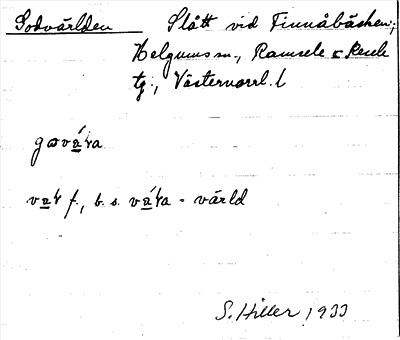 Godvärlden Slått vid Finnåbäcken;
Helgums sn., Ramsele o. Resele
tg., Västernorrl. l
gωvá̱ɽa
va̱ɽ f., b. s. vá̱ɽa - värld
S. Hiller 1933